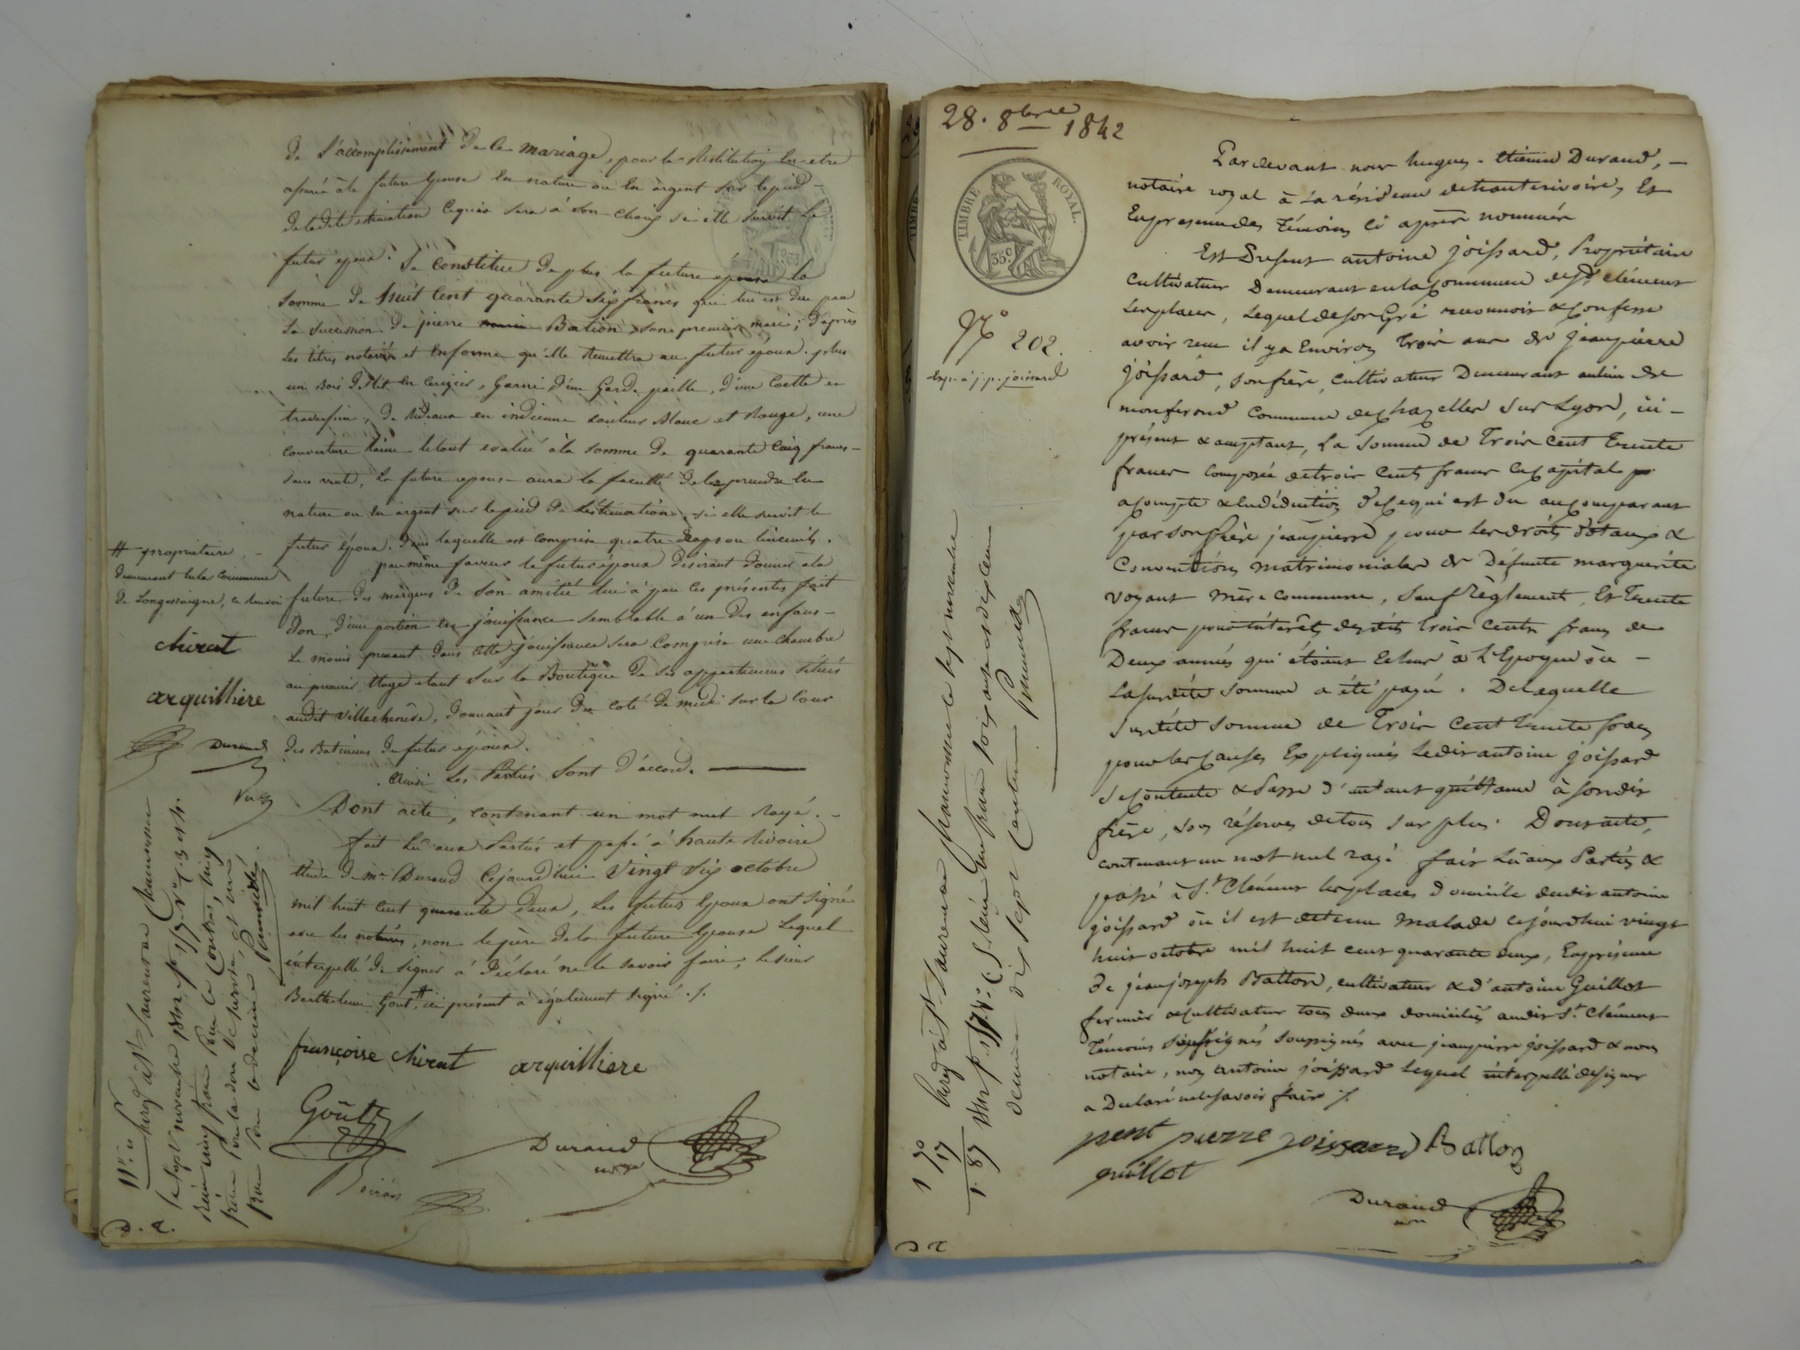 de l'accomplissement de ce mariage, pour la restitution en etre
assurée à la future épouse en nature ou en argent sur le pied
de ladite estimation ce qui sera à son choix si elle survit le
futur époux. Se constitue de plus la future épouse la
somme de huit cent quarante six francs qui lui est due par
la succession de pierre Bation son premier mari; d'après
les titres notariés et en forme qu'elle remettra au futur époux. plus
un bois de lit en cerizier, garni d'un garde paille, d'une coette en
de rideaux en indienne couleur blanc et rouge, une
couverture laine le tout evalué à la somme de quarante cinq francs
la future epouse aura la faculté de les prendre en
nature ou en argent sur le pied de l'estimation, si elle survit le
futur époux. dans laquelle est comprise quatre draps ou linceuils.
par même faveur le futur époux désirant donner à la
future des marques de son amitié lui a par ces présentes fait
don d'une portion en jouissance semblable à un des enfans
le moins prenant dans cette jouissance sera comprise une chambre
au premier étage étant sur la Boutique de ses appartemens situés
audit Villechenève, donnant jour du coté de midi sur la cour
des Batimens du futur époux.
Ainsi les Parties sont d'accord.
Dont acte, contenant un mot nul rayé.
fait lu aux Parties et passé à haute Rivoire
étude de me Durand cejourd'hui vingt six octobre
mil huit cent quarante deux, les futurs époux ont signé
avec les notaires, non le père de la future épouse lequel
interpellé de signer a déclaré ne le savoir faire, le sieur
Barthelemi Gout # ici présent a également signé ./.
# propriétaire,
demeurant en la commune
de Longessaigne,
chirat
arquilliere
Durand
françoise chirat arquilliere
Goutt
Durand
28. 8bre 1842
TIMBRE ROYAL.
35c
No 202.
exp. à j. p. joissard
Pardevant nous hugues-étienne Durand,
notaire royal à la résidence de hauterivoire, Et
En presence des témoins ci après nommés
Est Present antoine joissard, Propriétaire
cultivateur demeurant en la commune de St clément
les places, lequel de son gré reconnoit & confesse
avoir reçu il y a environ trois ans de jeanpierre
joissard, son frère, cultivateur demeurant au lieu de
monferond commune de chazelles sur Lyon, ici
présent & acceptant, la somme de trois cent trente
francs composée de trois cents francs en capital
acompte & en déduction de ce qui est du au comparant
par son frère jeanpierre pour les droits dotaux &
conventions matrimoniales de défunte marguerite
voyant mère commune, sauf règlement, Et trente
francs pour intérêts desdits trois cents francs de
Deux années qui étoient échues à l'Epoque où
la susdite somme a été payée. De laquelle
susdite somme de trois cent trente francs
pour les causes Expliquées ledit antoine joissard
se contente & passe d'autant quittance à son dit
frère, sous réserves de tous surplus. Dont acte,
contenant un mot nul rayé fait lu aux Parties &
passé à St. Clément les places domicile dudit antoine
joissard où il est detenu malade cejourd'hui vingt
huit octobre mil huit cent quarante deux, En présence
de jeanjoseph Batton, cultivateur & d'antoine Guillot
fermier & cultivateur tous deux domiciliés audit St. Clément
témoins soussignés avec jeanpierre joissard & nous
notaire, non antoine joissard lequel interpellé de signer
a Déclaré ne le savoir faire ./.
jent pierre joissard Batton
guillot
Durand